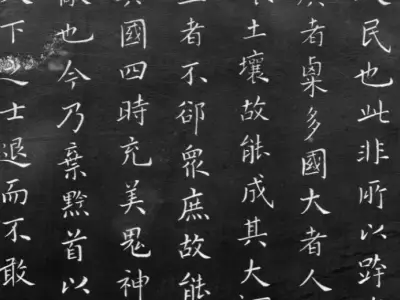 民也此非所以跨
者粟多國大者人
土壤故能成其大
者不郤衆庶故能
國四時充美鬼神
也今乃棄黔首以
下之士退而不敢